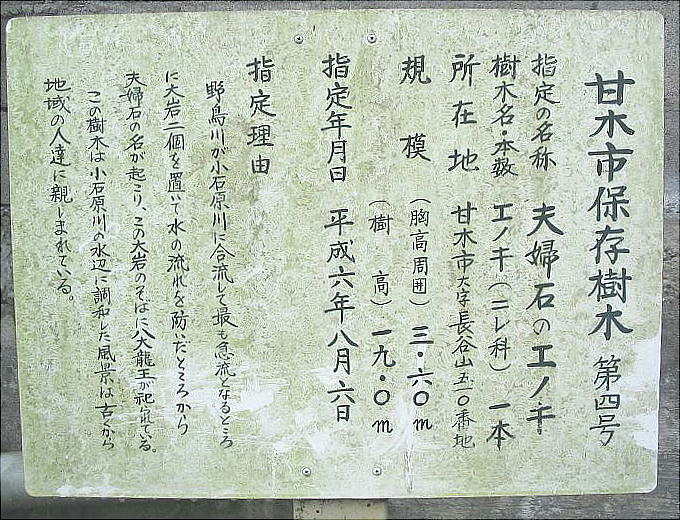 甘木市保存樹木 第四号
指定の名称 夫婦石のエノキ
樹木名・本数 エノキ(ニレ科) 一本
所在地 甘木市大字長谷山五一〇番地
規模 (胸高周囲) 三・六〇m
(樹高) 一九・〇m
指定年月日 平成六年八月六日
指定理由
野鳥川が小石原川に合流して最も急流となるところ
に大岩二個を置いて水の流れを防いだところから
夫婦石の名が起こり、この大岩のそばに八大龍王が祀られている。
この樹木は小石原川の水辺に調和した風景は古くから
地域の人達に親しまれている。